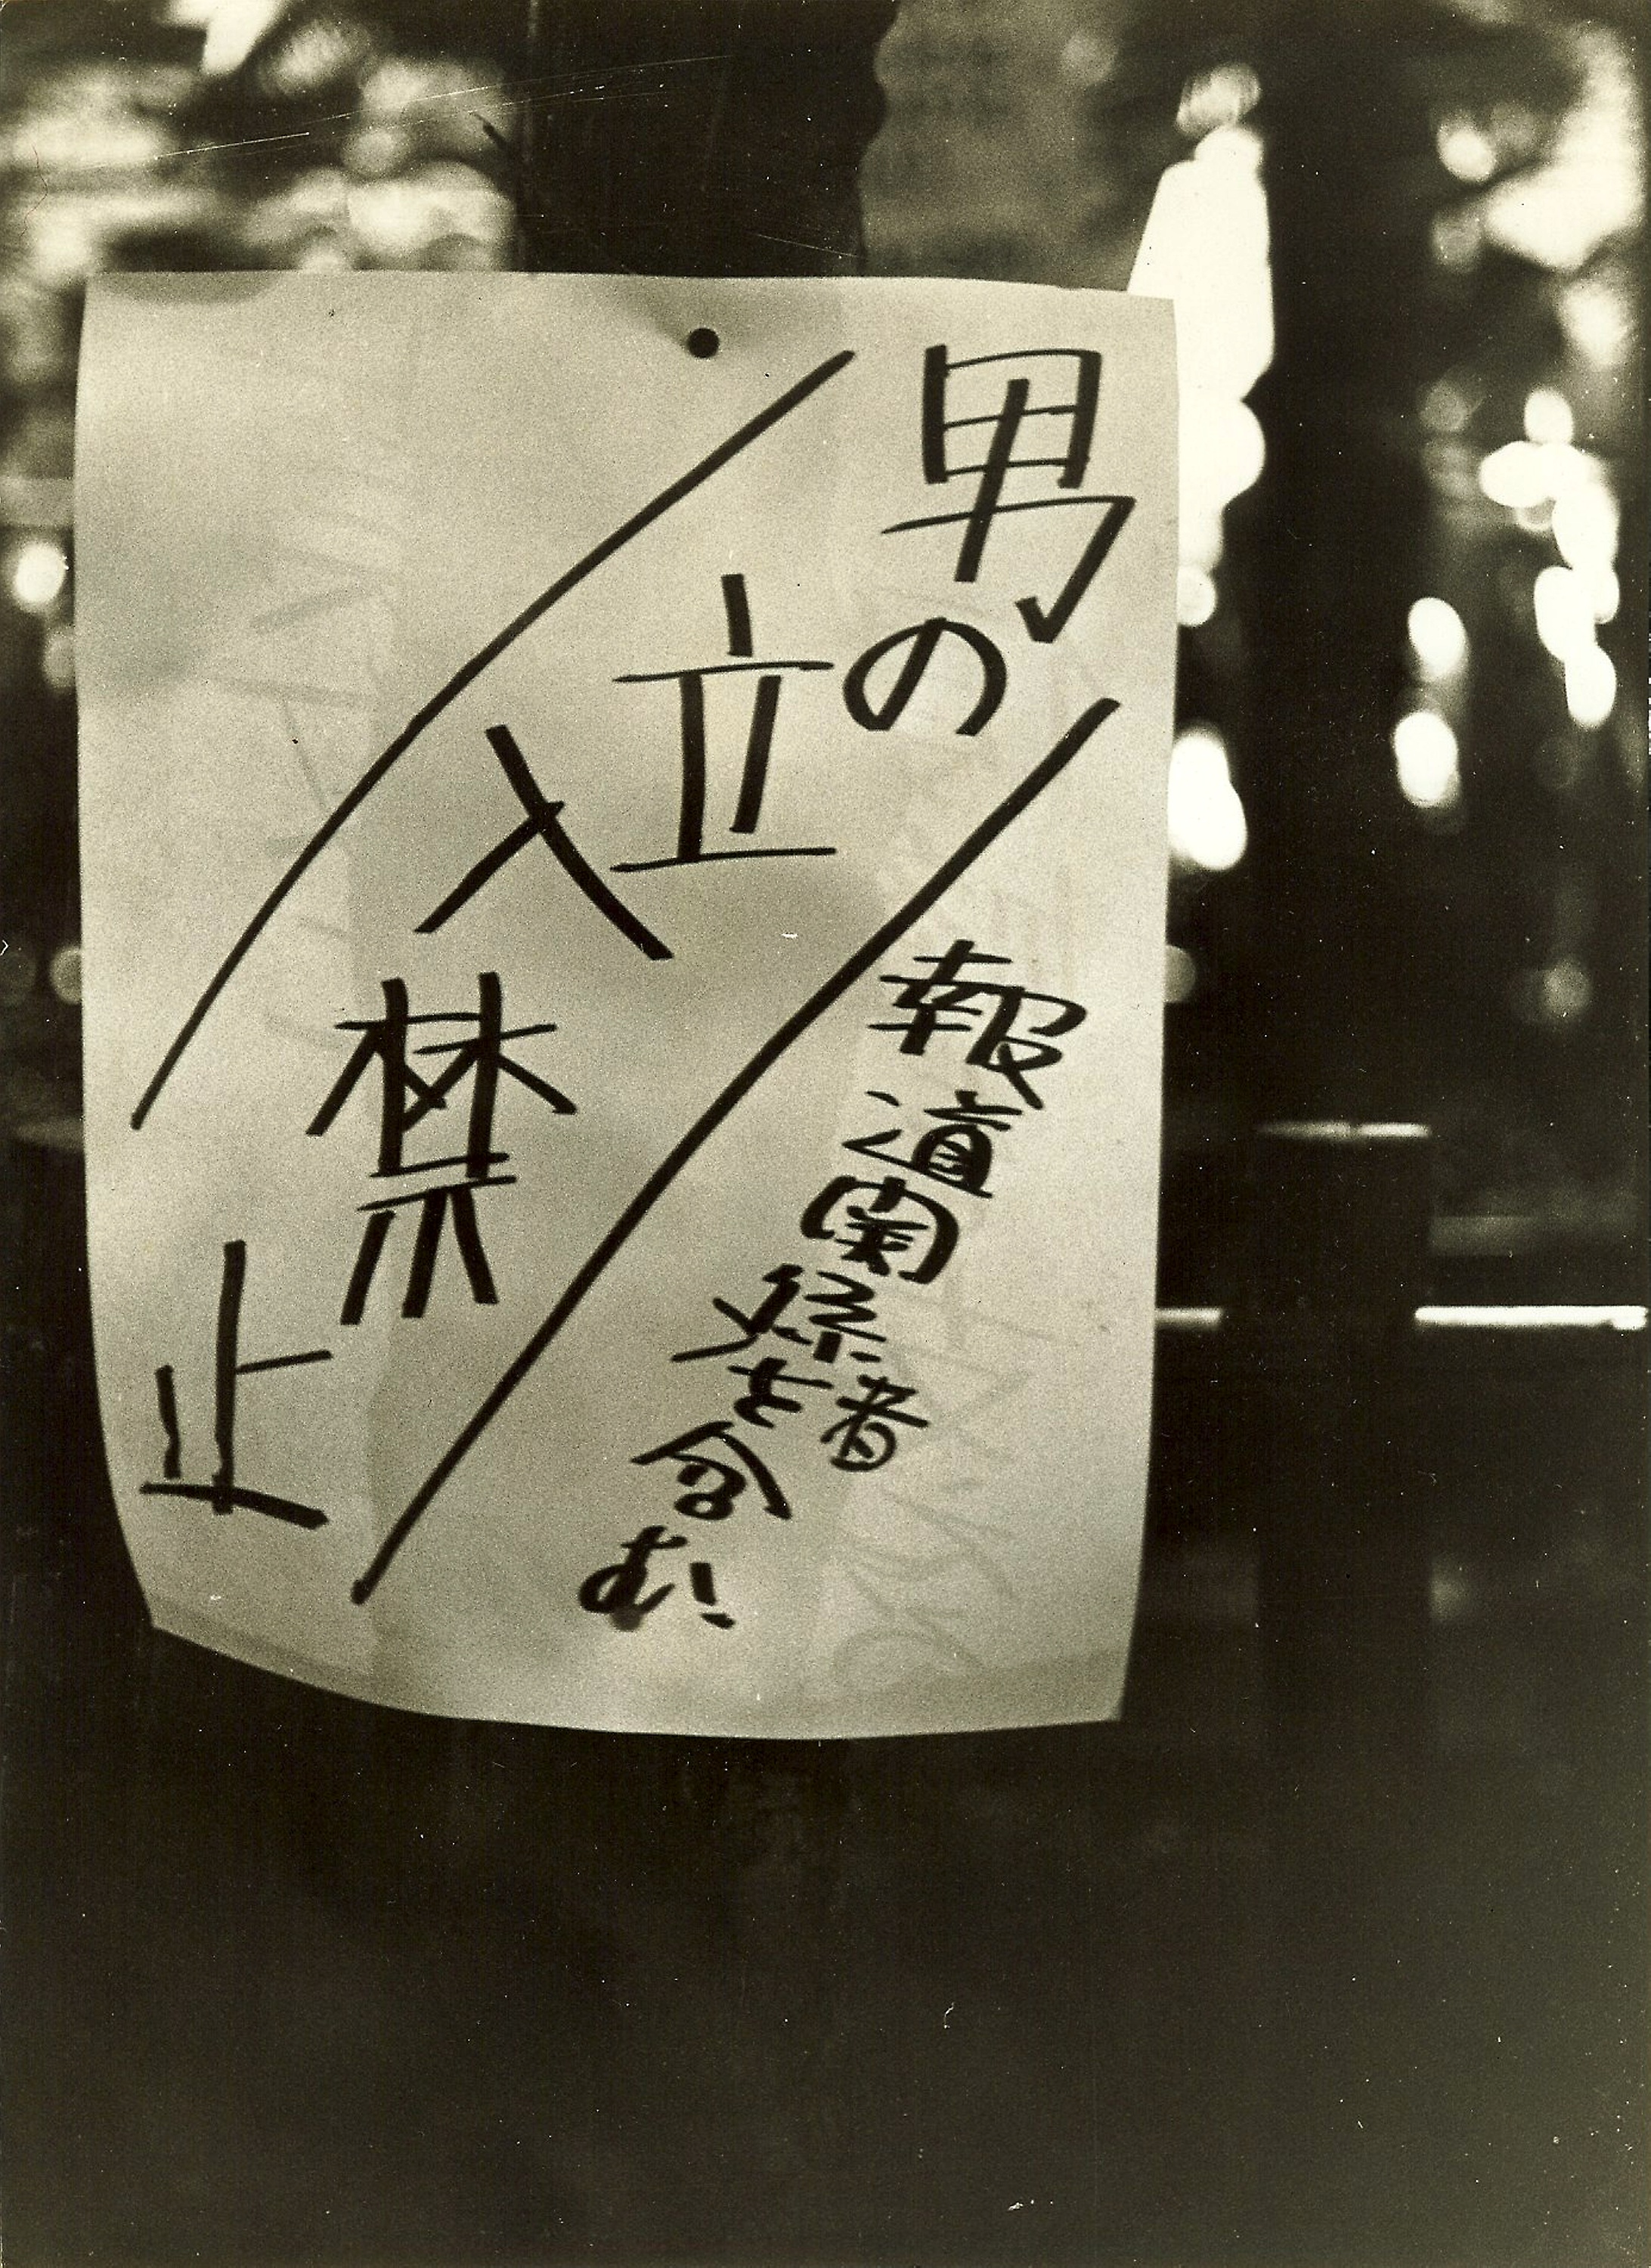 男の立入禁止
報道関係者を含む